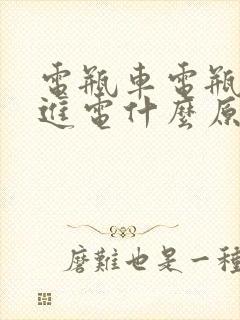 電瓶車電瓶
進電什麼原
磨難也是一種